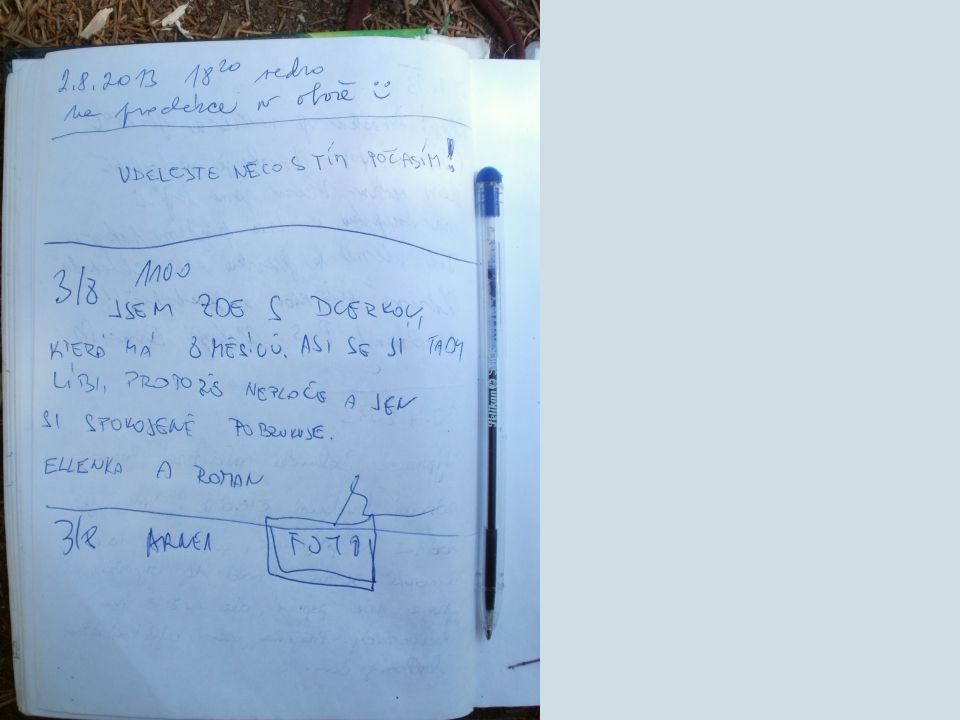 2.8.2013 18²⁰ vedro
na prochάzce v oboře :)
UDĚLEJTE NĚCO S TÍM POČASÍM!
3/8 1100
JSEM ZDE S DCERKOU,
KTERÁ MÁ 8 MĚSÍCŮ. ASI SE JÍ TADY
LÍBÍ, PROTOŽE NEPLÁČE A JEN
SI SPOKOJENĚ POBRUKUJE.
ELLENKA A ROMAN
3/8
Pelikan